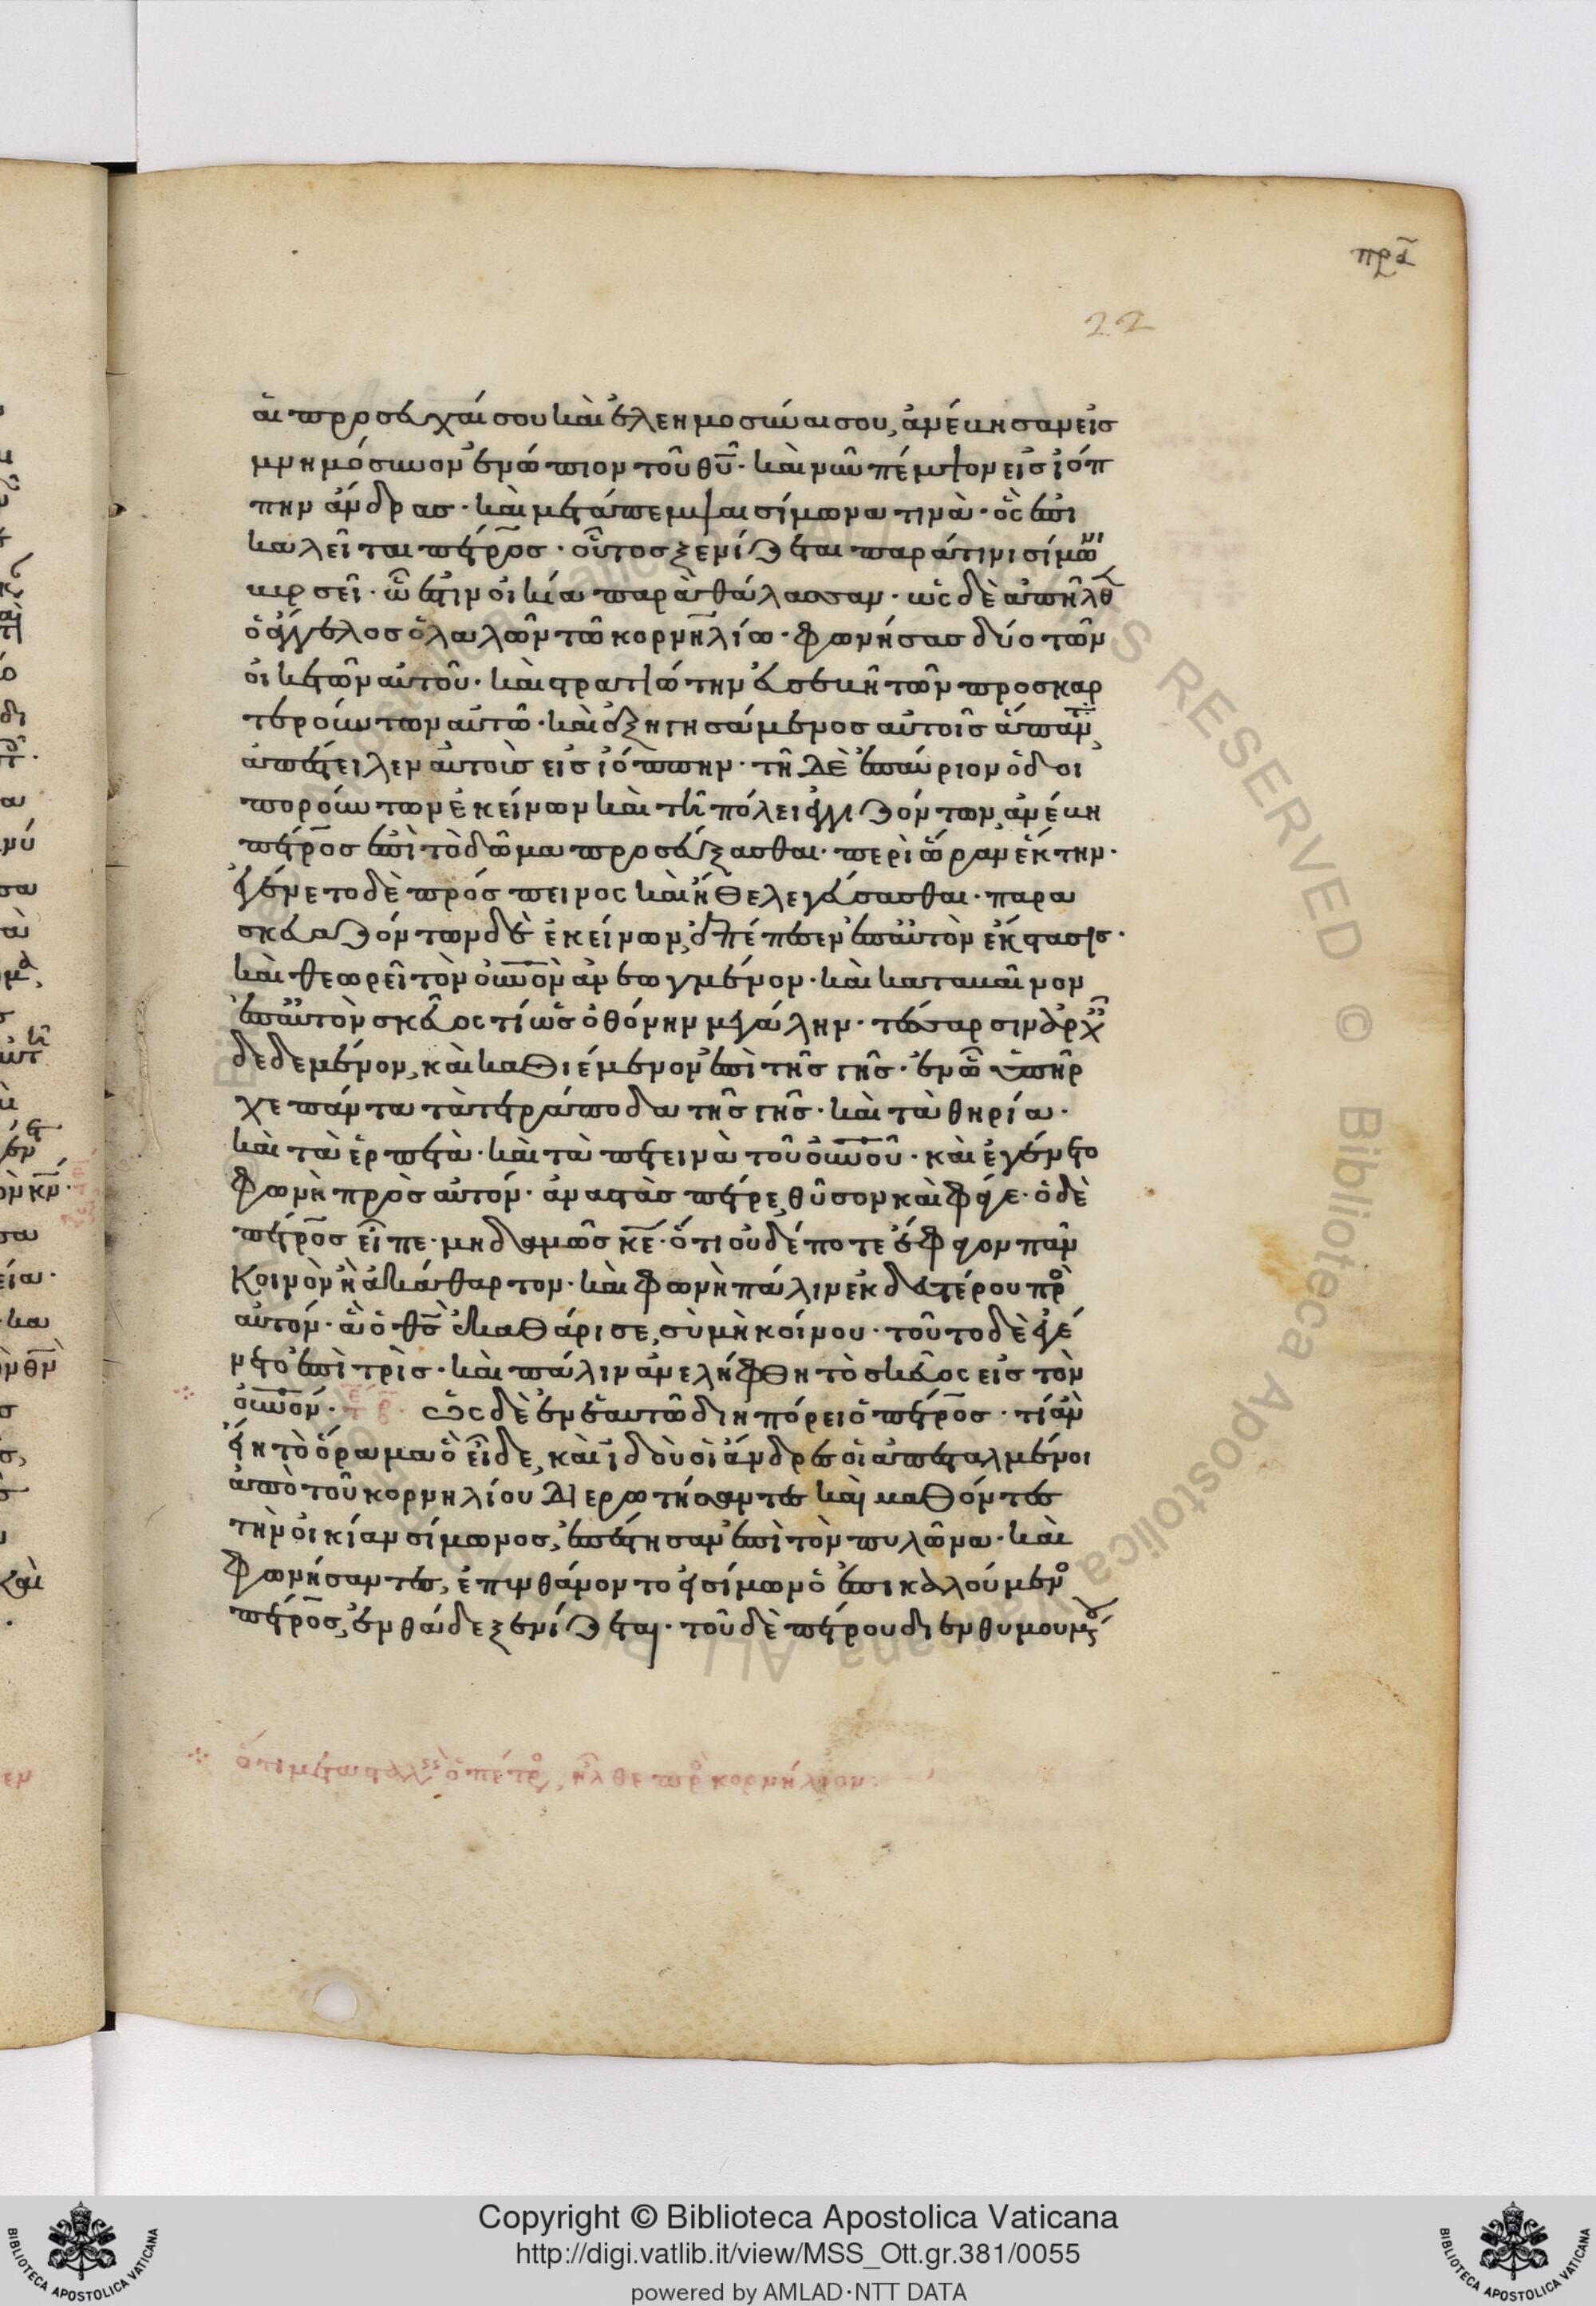 πρξ
22
αἱ προσευχαί σου καὶ ἐλεημοσύναι σου, ἀνέβησαν εἰς
μνημόσυνον ἐνώπιον τοῦ θυ̅· καὶ νῦν πέμψον εἰς ἰόπ
πην ἄνδρας· καὶ μετάπεμψαι σίμωνα τινὰ· ὃς ἐπι
καλεῖται πέτρος· οὗτος ξενίζεται παρά τινι σίμωνι
βυρσεῖ· ὧ ἐστιν οἰκία παρὰ θάλασσαν· ὡς δὲ ἀπῆλθεν
ὁ ἄγγελος ὁ λαλῶν τῶ κορνηλίω· φωνήσας δύο τῶν
οἰκετῶν αὐτοῦ· καὶ στρατιώτην εὐσεβῆ τῶν προσκαρ
τερούντων αὐτῶ· καὶ ἐξηγησάμενος αὐτοῖς ἅπαντα,
ἀπέστειλεν αὐτοὺς εἰς ἰόππην· τῆ δὲ ἐπαύριον ὁδοι
πορούντων ἐκείνων καὶ τῆ πόλει ἐγγιζόντων, ἀνέβη
πέτρος ἐπὶ τὸ δῶμα προσεύξασθαι· περὶ ὥραν ἕκτην·
ἐγένετο δὲ πρόσπεινος καὶ ἤθελε γεύσασθαι· παρα
σκευαζόντων δὲ ἐκείνων, ἐπέπεσεν ἐπ αὐτὸν ἔκστασις·
καὶ θεωρεῖ τὸν ουνον ἀνεωγμένον· καὶ καταβαῖνον
ἐπ αὐτὸν σκεῦος τί ὡς ὀθόνην μεγάλην· τέσσαρσιν ἀρχαῖς
δεδεμένον, καὶ καθιέμενον ἐπὶ τῆς γῆς· ἐν ὧ ὑπῆρ
χε πάντα τὰ τετράποδα τῆς γῆς· καὶ τὰ θηρία·
καὶ τὰ ἑρπετὰ· καὶ τὰ πετεινὰ τοῦ ουνου· καὶ ἐγένετο
φωνὴ πρὸς αὐτόν· ἀναστὰς πέτρε, θῦσον καὶ φάγε· ὁ δὲ
πέτρος εἶπε· μηδαμῶς κε· ὅτι οὐδέποτε ἔφαγον πᾶν
κοινὸν ἢ ἀκάθαρτον· καὶ φωνὴ πάλιν ἐκ δευτέρου πρὸς
αὐτόν· ἃ ὁ θς ἐκαθάρισε, σὺ μὴ κοίνου· τοῦτο δὲ ἐγέ
νετο ἐπὶ τρὶς· καὶ πάλιν ἀνελήφθη τὸ σκεῦος εἰς τὸν
ουνον· ὡς δὲ ἐν ἑαυτῶ διηπόρει ὁ πέτρος· τί ἂν
εἴη τὸ ὅραμα ὃ εἶδε, καὶ ἰδοὺ οἱ ἄνδρες οἱ ἀπεσταλμένοι
ἀπὸ τοῦ κορνηλίου διερωτήσαντες καὶ μαθόντες
τὴν οἰκίαν σίμωνος, ἐπέστησαν ἐπὶ τὸν πυλῶνα· καὶ
φωνήσαντες, ἐπυνθάνοντο εἰ σίμων ὁ ἐπικαλούμενος
πέτρος, ἐνθάδε ξενίζεται· τοῦ δὲ πέτρου διενθυμουμένου
ὅτι ὁ πέτρος ἦλθε πρὸς κορνήλιον
Copyright © Biblioteca Apostolica Vaticana
http://digi.vatlib.it/view/MSS_Ott.gr.381/0055
powered by AMLAD·NTT DATA